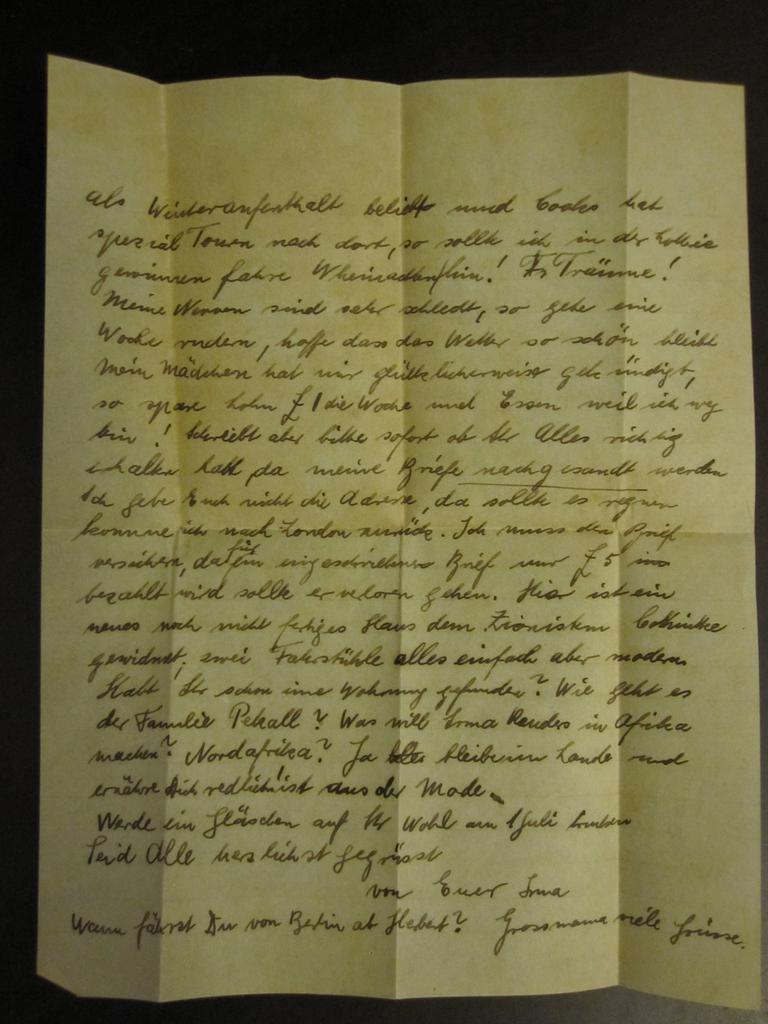 als Winteraufenthalt beliebt und Cooks hat
spezial Touren nach dort, so sollte ich in der Lotterie
gewinnen fahre hin! Träume!
Meine Nerven sind sehr schlecht, so gehe eine
Woche rudern, hoffe dass das Wetter so schön bleibt
Mein Mädchen hat mir glücklicherweise gekündigt,
so spare Lohn £ 1 die Woche und Essen weil ich weg
bin! Schreibt aber bitte sofort ob Ihr Alles richtig
erhalten habt, da meine Briefe nachgesandt werden
Ich gebe Euch nicht die Adresse, da sollte es regnen
komme ich nach London zurück. Ich muss den Brief
versichern, da für ein eingeschriebener Brief nur £ 5
bezahlt wird sollte er verloren gehen. Hier ist ein
neues noch nicht fertiges Haus dem Zionisten
gewidmet, zwei Fahrstühle alles einfach aber modern
Habt Ihr schon eine Wohnung gefunden? Wie geht es
der Familie Pekall? Was will Irma in Afrika
machen? Nordafrika? Ja bleibe im Lande und
ernähre Dich redlich! ist aus der Mode.
Werde ein Gläschen auf Ihr Wohl am 1 Juli trinken
Seid Alle herzlichst gegrüsst
von Euer Irma
Wann fährst Du von Berlin ab Herbert? Grossmama viele Grüsse.